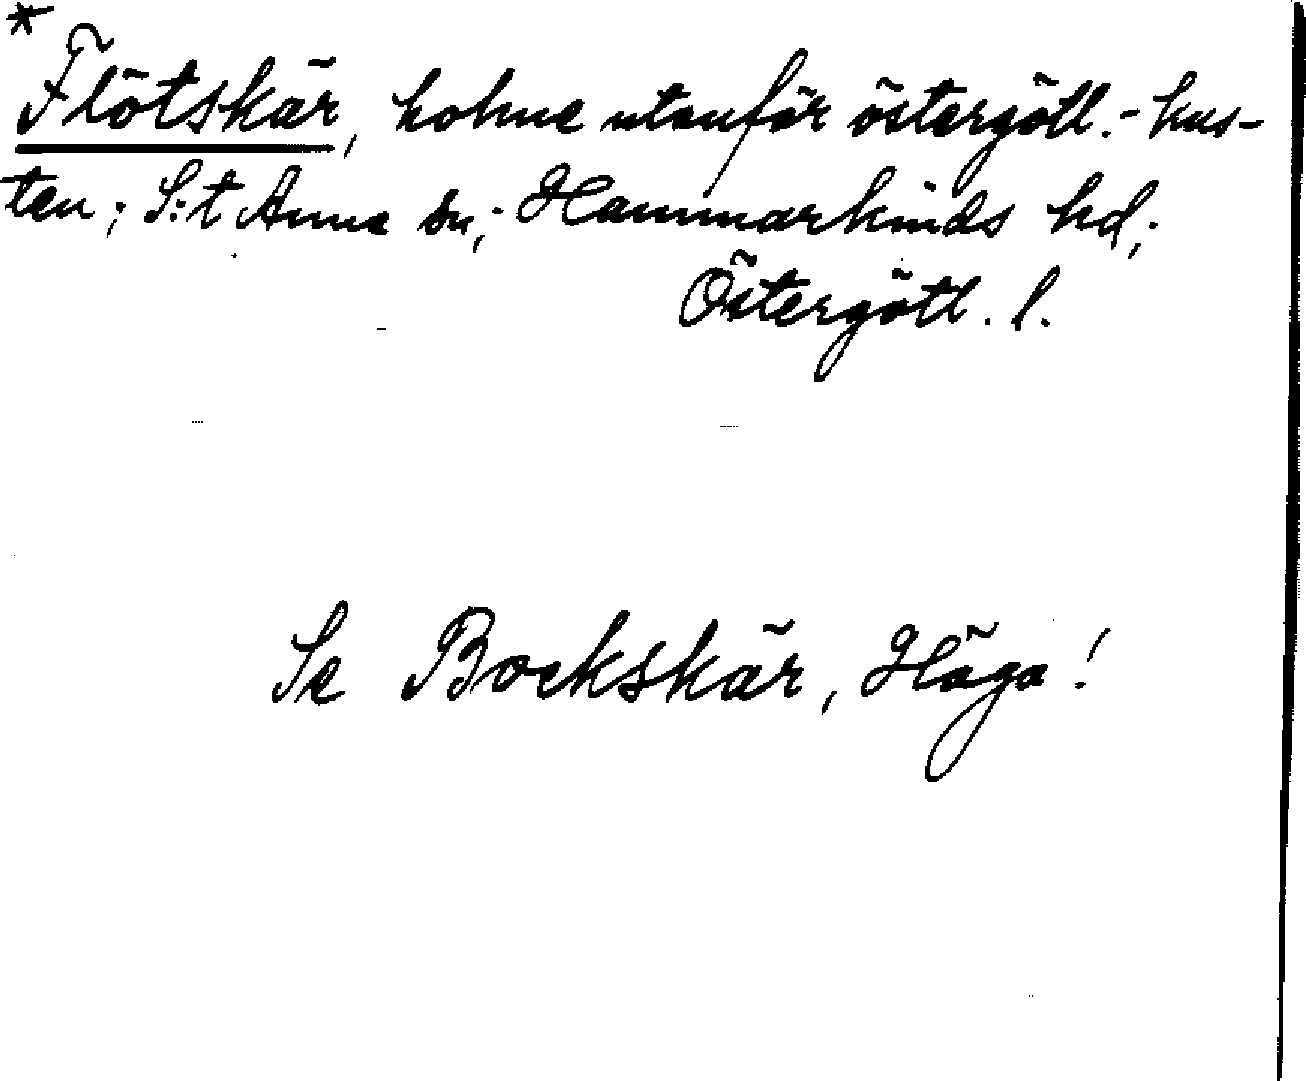 *
Flötskär, holme utanför östergötl.-kus-
ten; S:t Anna sn; Hammarkinds hd;
Östergötl. l.
Se Bockskär, Höga!